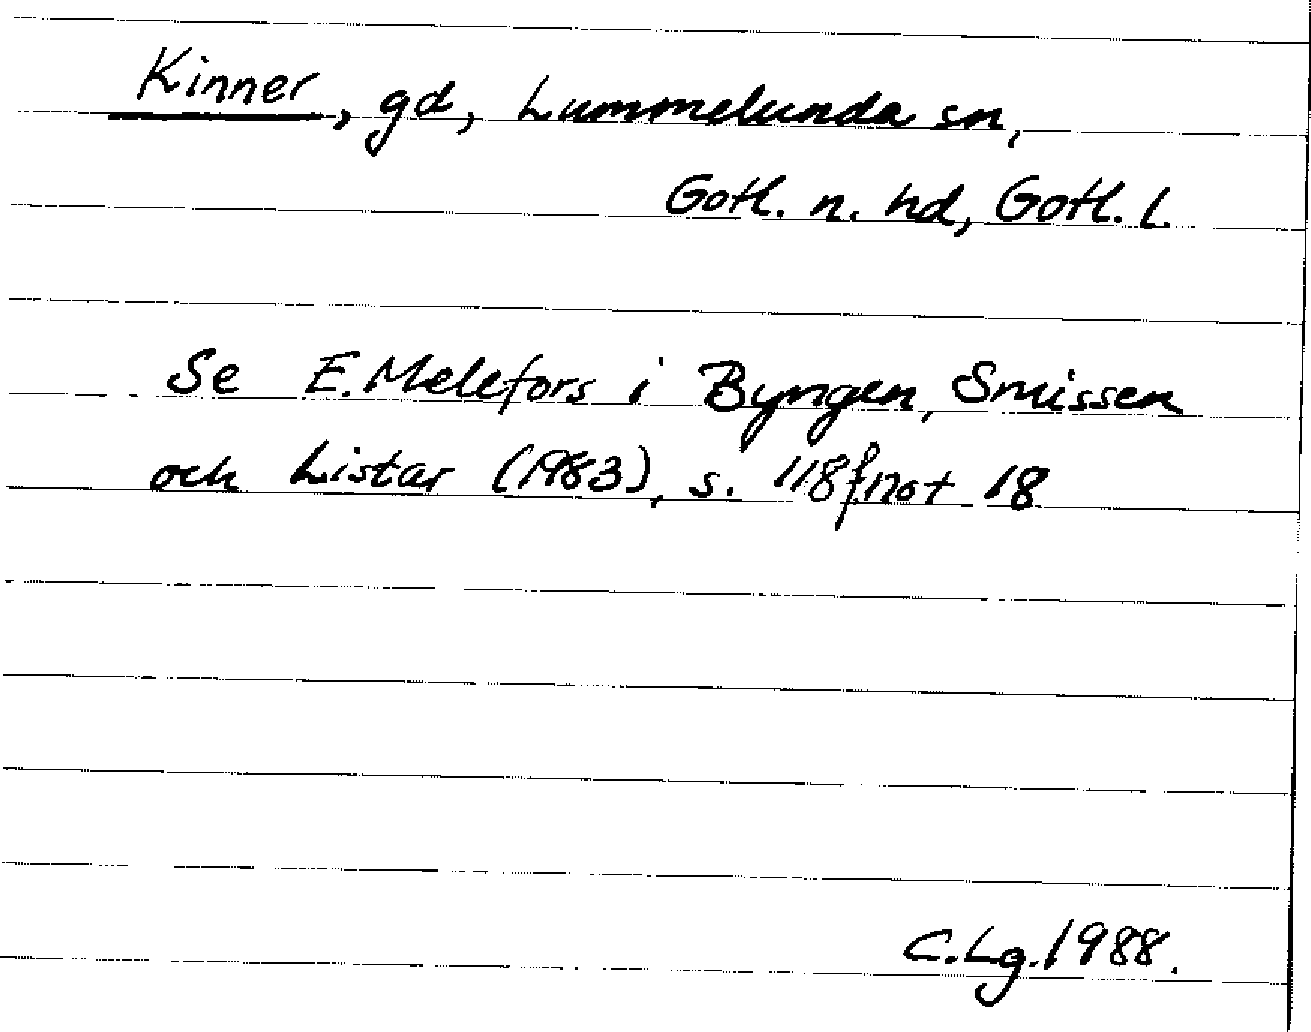 Kinner, gd, Lummelunda sn,
Gotl. n. hd, Gotl. l.
Se E. Melefors i Byngen, Smissen
och Listar (1983), s. 118 f. not 18
C. Lg. 1988.